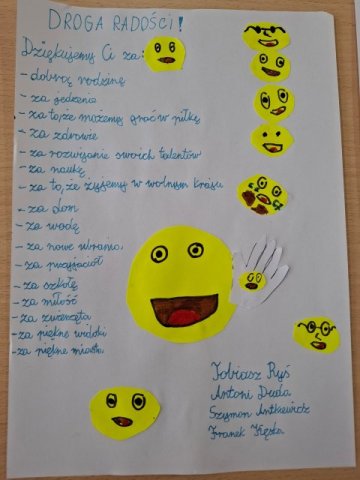 DROGA RADOŚCI!
Dziękujemy Ci za:
- dobrą rodzinę
- za jedzenie
- za to, że możemy grać w piłkę
- za zdrowie
- za rozwijanie swoich talentów
- za naukę
- za to, że żyjemy w wolnym kraju
- za dom
- za wodę
- za nowe ubrania
- za przyjaciół
- za szkołę
- za miłość
- za zwierzęta
- za piękne widoki
- za piękne miasta
Tobiasz Ryś
Antoni Duda
Szymon Antkiewicz
Franek